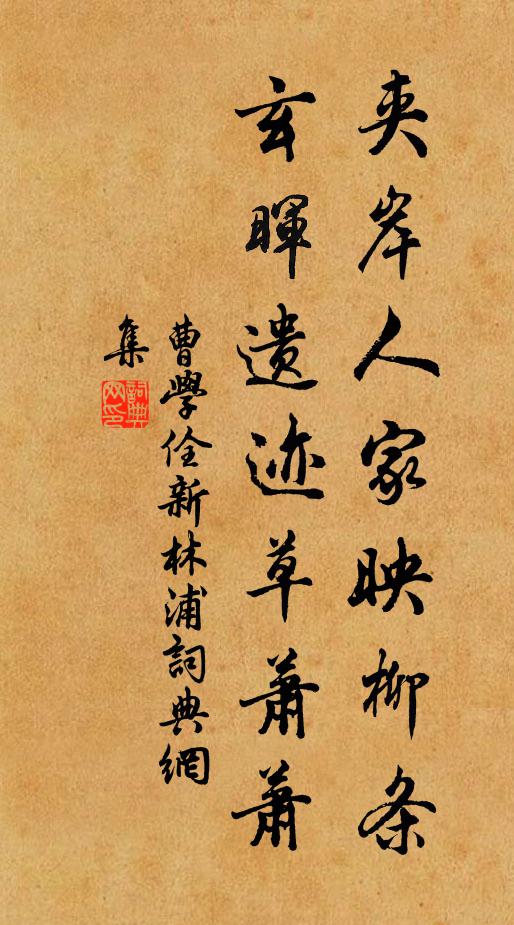 夹岸人家映柳条
玄暉遗迹草萧萧
曹學佺新林浦詞典網
集
詞典網印